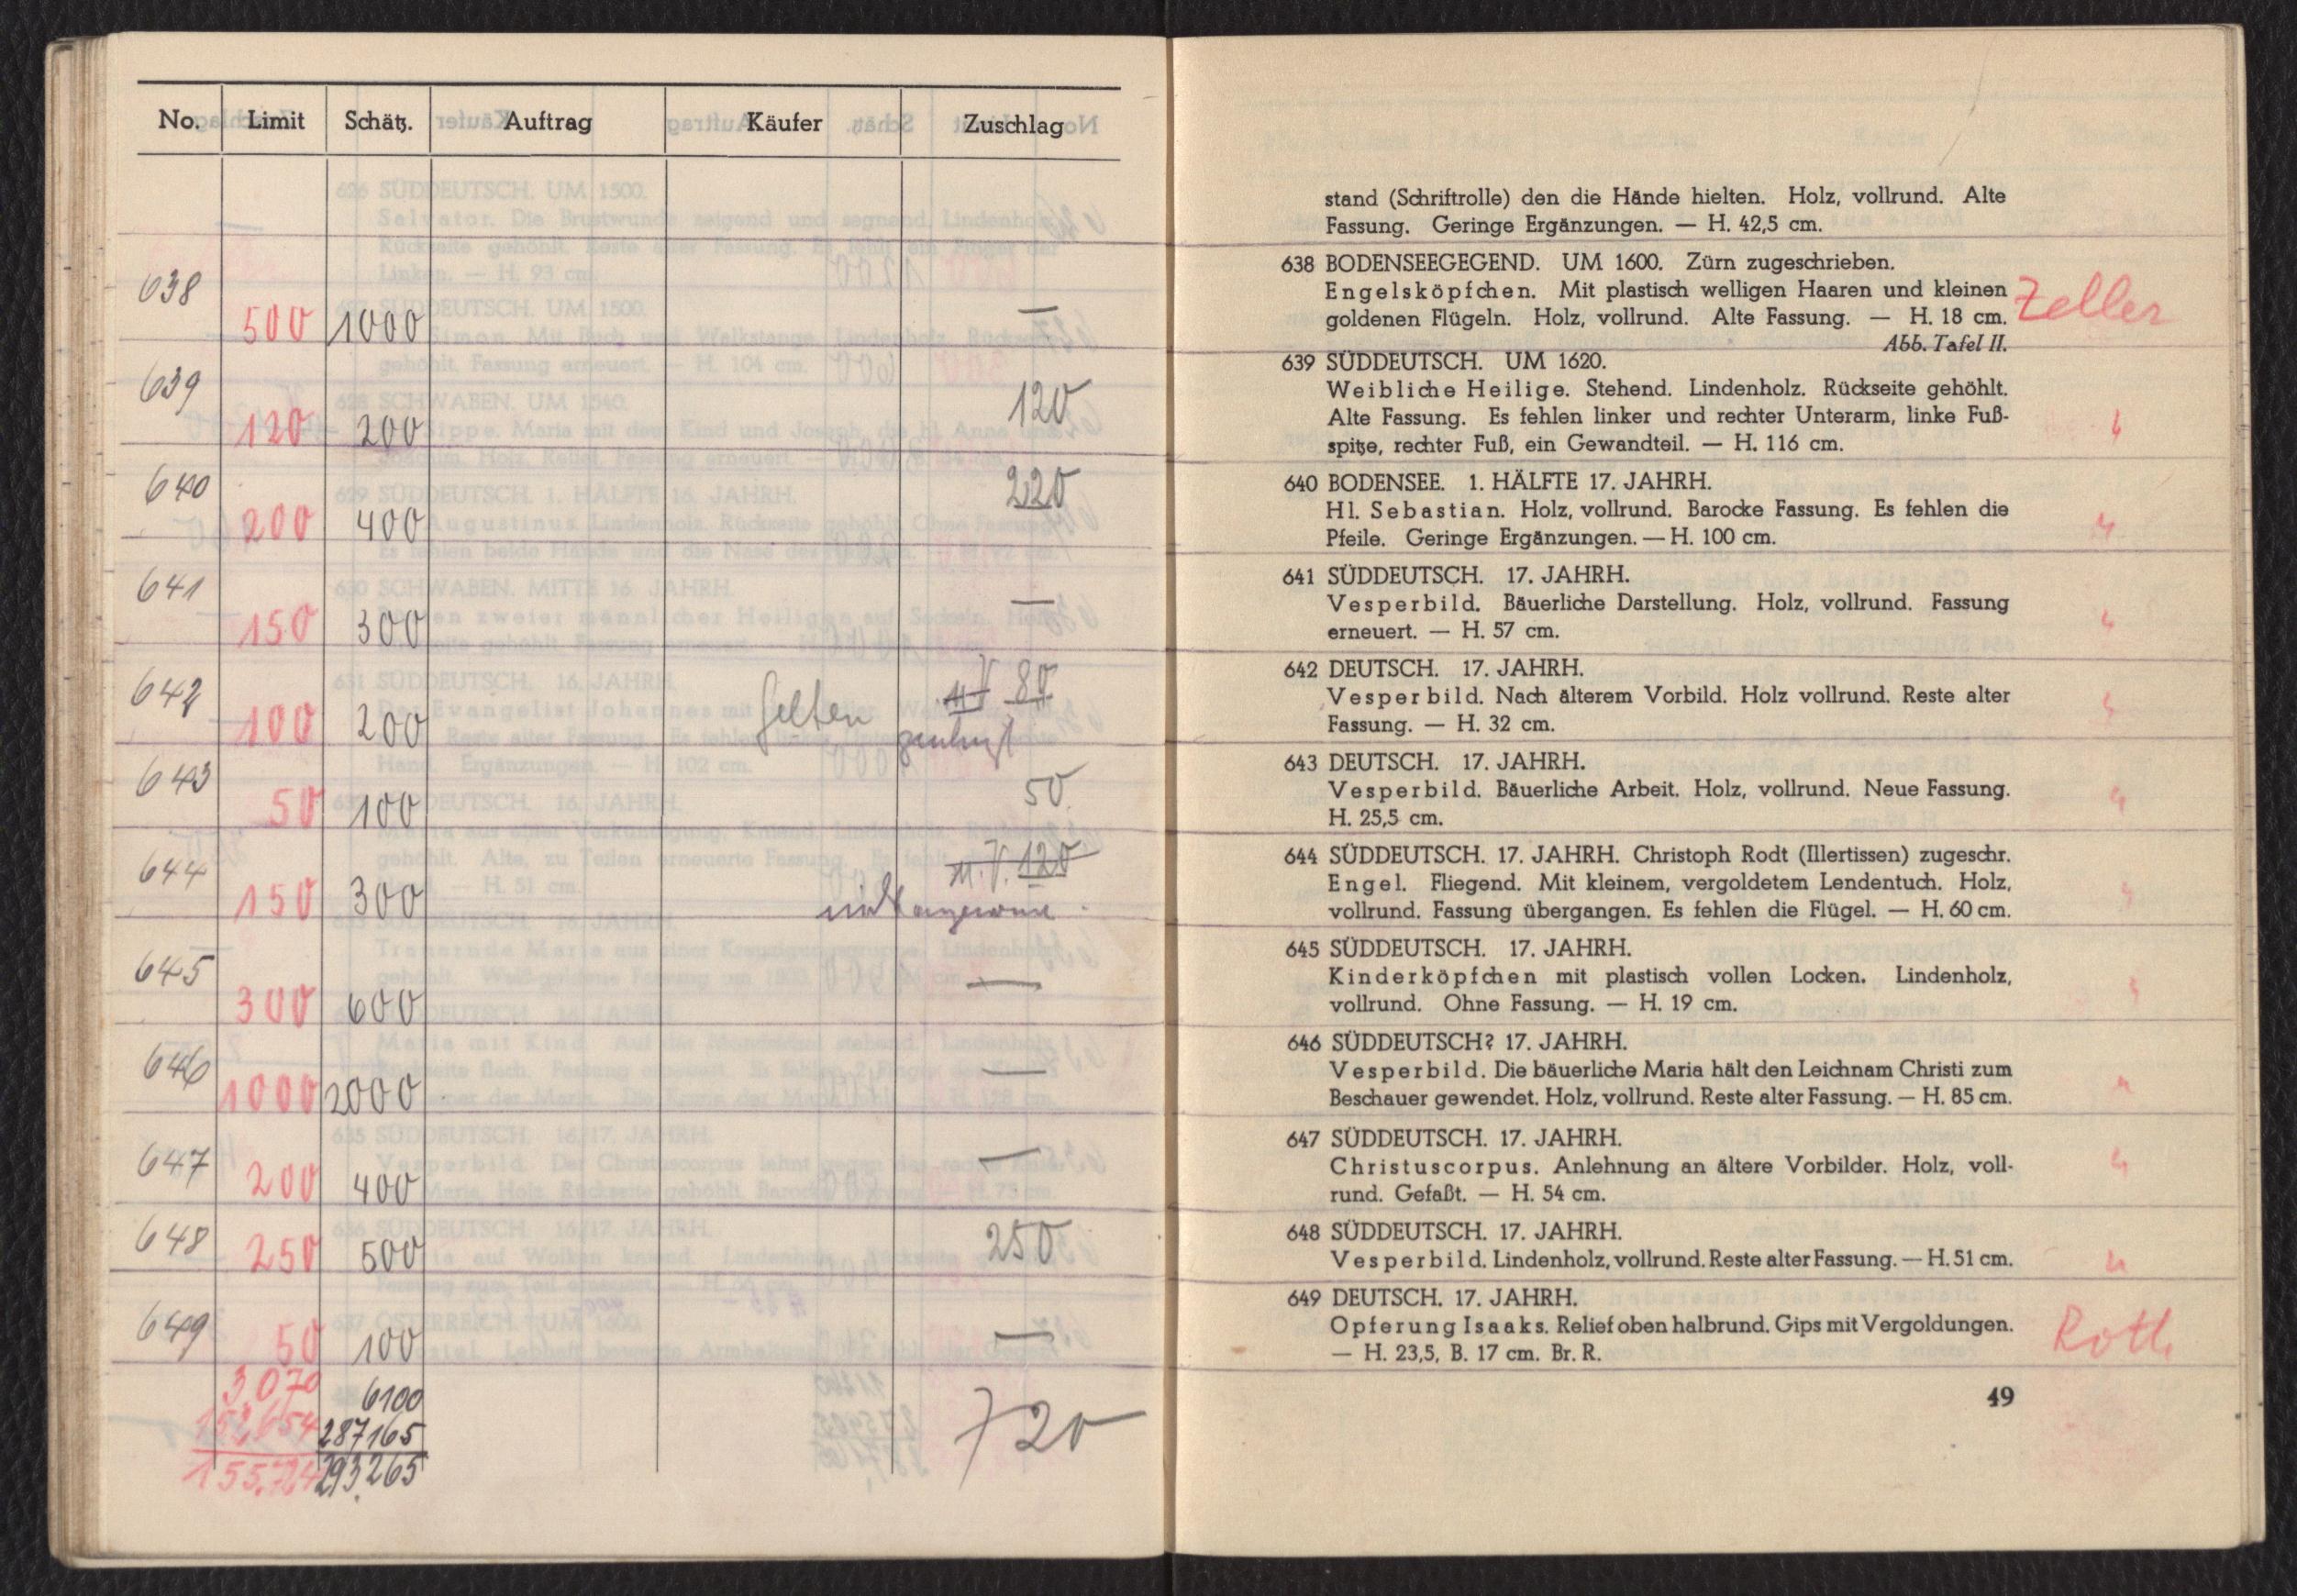 No. Limit Schätz. Auftrag Käufer Zuschlag
638 500 1000 —
639 120 200 120
640 200 400 220
641 150 300 —
642 100 200 80
643 50 100 50
644 150 300 m. V. 120
nicht angenomm
645 300 600 —
646 1000 2000 —
647 200 400 —
648 250 500 250
649 50 100 —
3070 6100
287165
293.265
720
stand (Schriftrolle) den die Hände hielten. Holz, vollrund. Alte
Fassung. Geringe Ergänzungen. — H. 42,5 cm.
638 BODENSEEGEGEND. UM 1600. Zürn zugeschrieben.
Engelsköpfchen. Mit plastisch welligen Haaren und kleinen
goldenen Flügeln. Holz, vollrund. Alte Fassung. — H. 18 cm.
Zeller
Abb. Tafel II.
639 SÜDDEUTSCH. UM 1620.
Weibliche Heilige. Stehend. Lindenholz. Rückseite gehöhlt.
Alte Fassung. Es fehlen linker und rechter Unterarm, linke Fuß-
spitze, rechter Fuß, ein Gewandteil. — H. 116 cm.
640 BODENSEE. 1. HÄLFTE 17. JAHRH.
Hl. Sebastian. Holz, vollrund. Barocke Fassung. Es fehlen die
Pfeile. Geringe Ergänzungen. — H. 100 cm.
641 SÜDDEUTSCH. 17. JAHRH.
Vesperbild. Bäuerliche Darstellung. Holz, vollrund. Fassung
erneuert. — H. 57 cm.
642 DEUTSCH. 17. JAHRH.
Vesperbild. Nach älterem Vorbild. Holz vollrund. Reste alter
Fassung. — H. 32 cm.
643 DEUTSCH. 17. JAHRH.
Vesperbild. Bäuerliche Arbeit. Holz, vollrund. Neue Fassung.
H. 25,5 cm.
644 SÜDDEUTSCH. 17. JAHRH. Christoph Rodt (Illertissen) zugeschr.
Engel. Fliegend. Mit kleinem, vergoldetem Lendentuch. Holz,
vollrund. Fassung übergangen. Es fehlen die Flügel. — H. 60 cm.
645 SÜDDEUTSCH. 17. JAHRH.
Kinderköpfchen mit plastisch vollen Locken. Lindenholz,
vollrund. Ohne Fassung. — H. 19 cm.
646 SÜDDEUTSCH? 17. JAHRH.
Vesperbild. Die bäuerliche Maria hält den Leichnam Christi zum
Beschauer gewendet. Holz, vollrund. Reste alter Fassung. — H. 85 cm.
647 SÜDDEUTSCH. 17. JAHRH.
Christuscorpus. Anlehnung an ältere Vorbilder. Holz, voll-
rund. Gefaßt. — H. 54 cm.
648 SÜDDEUTSCH. 17. JAHRH.
Vesperbild. Lindenholz, vollrund. Reste alter Fassung. — H. 51 cm.
649 DEUTSCH. 17. JAHRH.
Opferung Isaaks. Relief oben halbrund. Gips mit Vergoldungen.
— H. 23,5, B. 17 cm. Br. R.
Roth
49